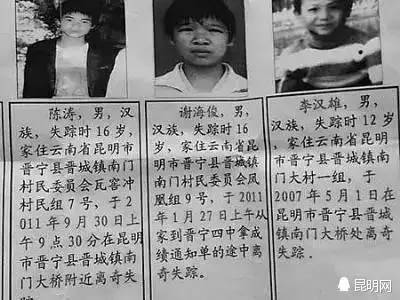 陈涛，男，汉
族，失踪时16岁，
家住云南省昆明
市晋宁县晋城镇
南门村民委员会瓦窑冲
村民组7号，于2
011年9月30日上
午9点30分在昆明
市晋宁县晋城镇
南门大桥附近离奇
失踪。
谢海俊，男，
汉族，失踪时16
岁，家住云南省昆
明市晋宁县晋城镇南
门村民委员会凤
凰组9号，于2011
年1月27日上午从
家到晋宁四中拿成
绩通知单的途中离
奇失踪。
李汉雄，男，
汉族，失踪时12岁，
家住云南省昆明市
晋宁县晋城镇南门
大村一组，于
2007年5月1日在
昆明市晋宁县晋城
镇南门大桥处离奇
失踪。
昆明网